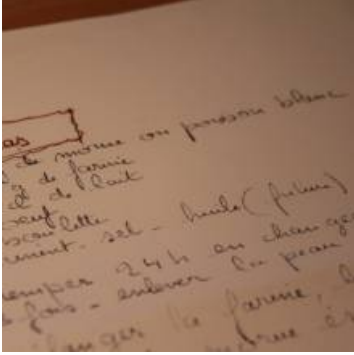 as
de morue ou poisson blanc
g de farine
de lait
oeuf
ciboulette
ment - sel - huile (friture)
emper 24 h en change
fois - enlever la peau
langer la farine,